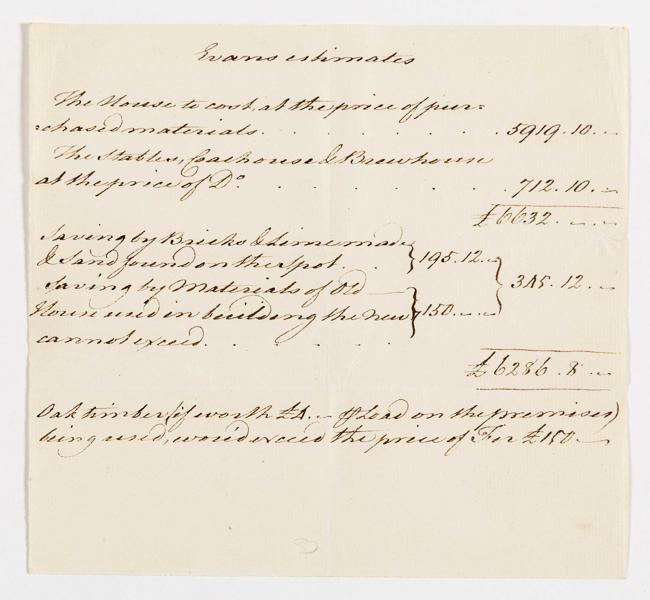 Evans estimates
The House to cost, at the price of pur=
=chased materials. . . . . . . . 5919.10.~
The Stables, Coachouse & Brewhouse
at the price of Do. . . . . . . . 712.10.~
£6632.~.~
Saving by Bricks & Lime made
& Sand found on the spot. . . } 195.12.~
Saving by Materials of Old } 345.12.~
House used in building the new } 150.~.~
cannot exceed. . . . . .
£6286.8.~
Oak timber (if worth £4.~ ⅌ Load on the premises)
being used, would exceed the price of Fir £150.~